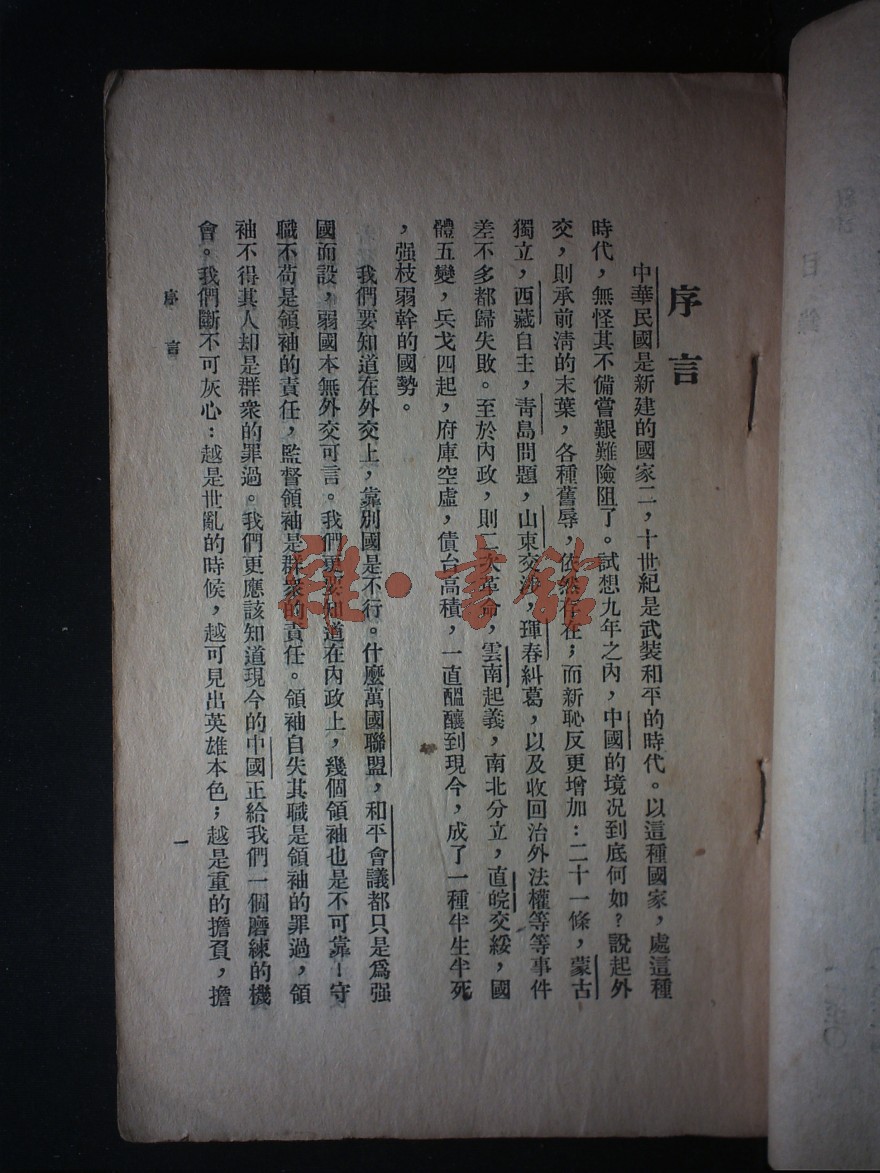 序言
中華民國是新建的國家二，十世紀是武裝和平的時代。以這種國家，處這種
時代，無怪其不備嘗艱難險阻了。試想九年之內，中國的境況到底何如？說起外
交，則承前清的末葉，各種舊辱，依然存在；而新恥反更增加：二十一條，蒙古
獨立，西藏自主，青島問題，山東交涉，琿春糾葛，以及收回治外法權等等事件
差不多都歸失敗。至於內政，則二次革命，雲南起義，南北分立，直皖交綏，國
體五變，兵戈四起，府庫空虛，債台高積，一直醞釀到現今，成了一種半生半死
，强枝弱幹的國勢。
我們要知道在外交上，靠別國是不行。什麼萬國聯盟，和平會議都只是爲强
國而設，弱國本無外交可言。我們更要知道在內政上，幾個領袖也是不可靠！守
職不苟是領袖的責任，監督領袖是群衆的責任。領袖自失其職是領袖的罪過，領
袖不得其人却是群衆的罪過。我們更應該知道現今的中國正給我們一個磨練的機
會。我們斷不可灰心：越是世亂的時候，越可見出英雄本色；越是重的擔負，擔
序言
一
雜·書館